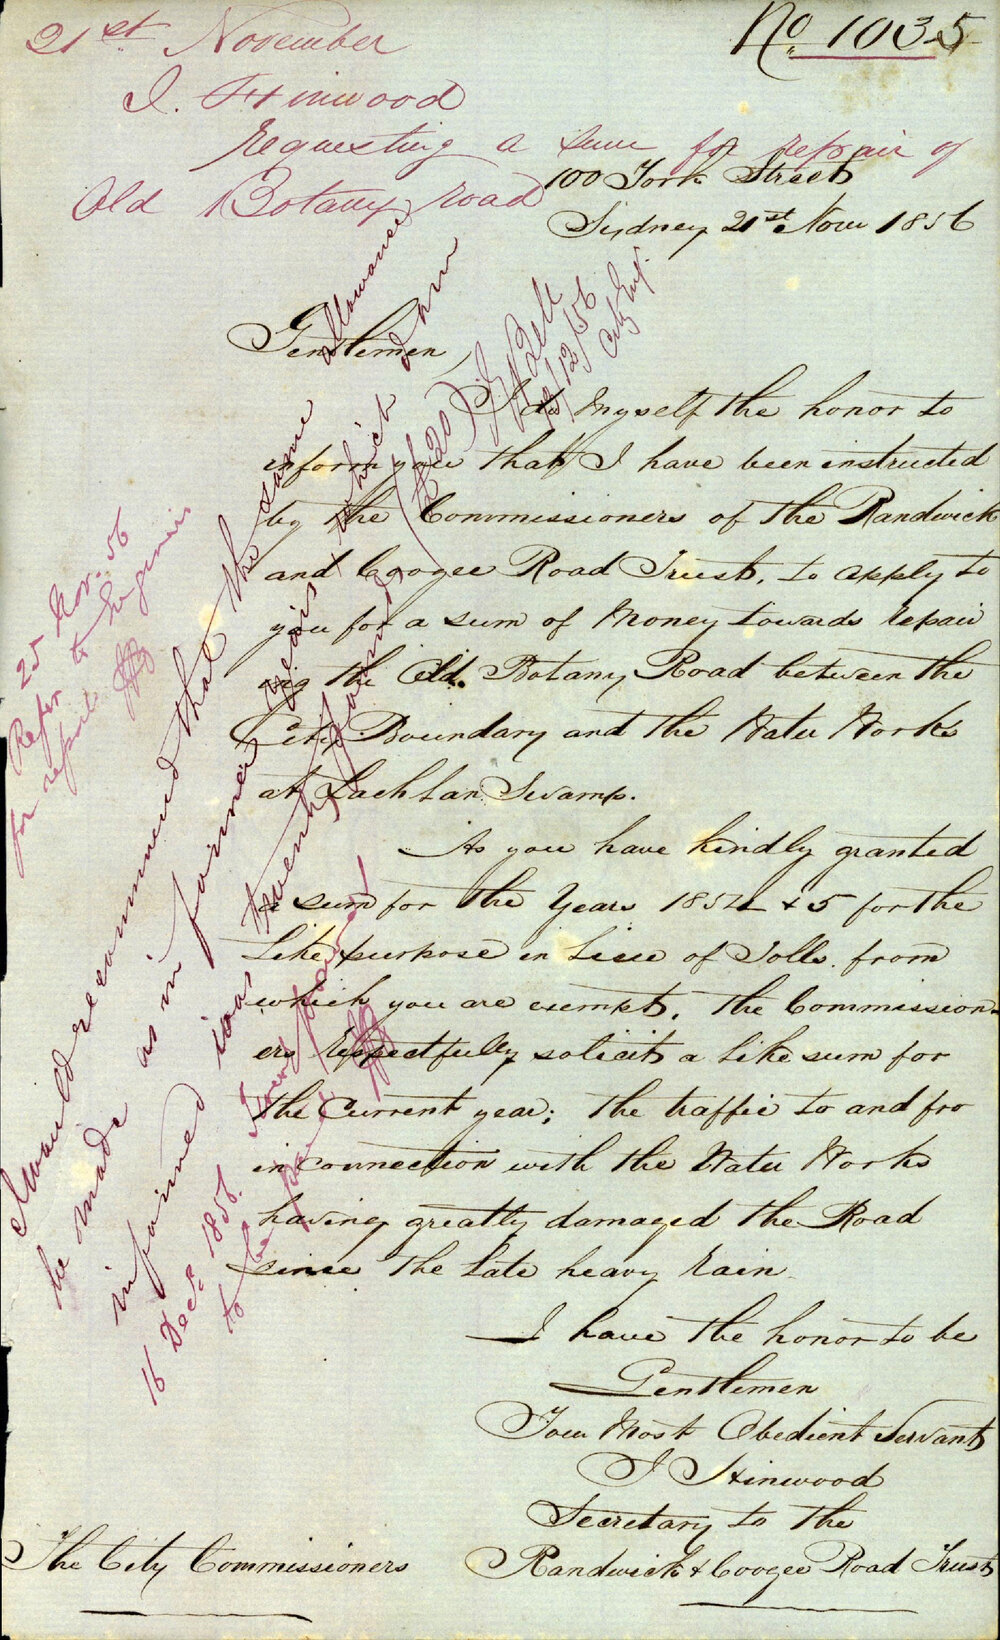 21st November
No. 1035
J. Hinwood
requesting a sum for repair of
Old Botany road
100 York Street
Sydney 21st Novr 1856
Gentlemen,
I do Myself the honor to
inform you that I have been instructed
by the Commissioners of the Randwick
and Coogee Road Trust, to apply to
you for a sum of Money towards repair
ing the Old Botany Road between the
City Boundary and the Water Works
at Lachlan Swamp.
As you have kindly granted
a sum for the Years 1854 & 5 for the
like purpose in lieu of Tolls from
which you are exempt. The Commission-
ers respectfully solicit a like sum for
the Current year; the traffic to and fro
in connection with the Water Works
having greatly damaged the Road
since the late heavy rain
I have the honor to be
Gentlemen
Your Most Obedient Servant
J Hinwood
Secretary to the
Randwick & Coogee Road Trust
The City Commissioners
25 Nov. 56
Refer to Engineer
for report
I would recommend that the same allowance
be made as in former years which I am
informed was twenty pounds (£20)
12/56
City Engr.
16 Decr 1856. Twenty pounds
to be paid